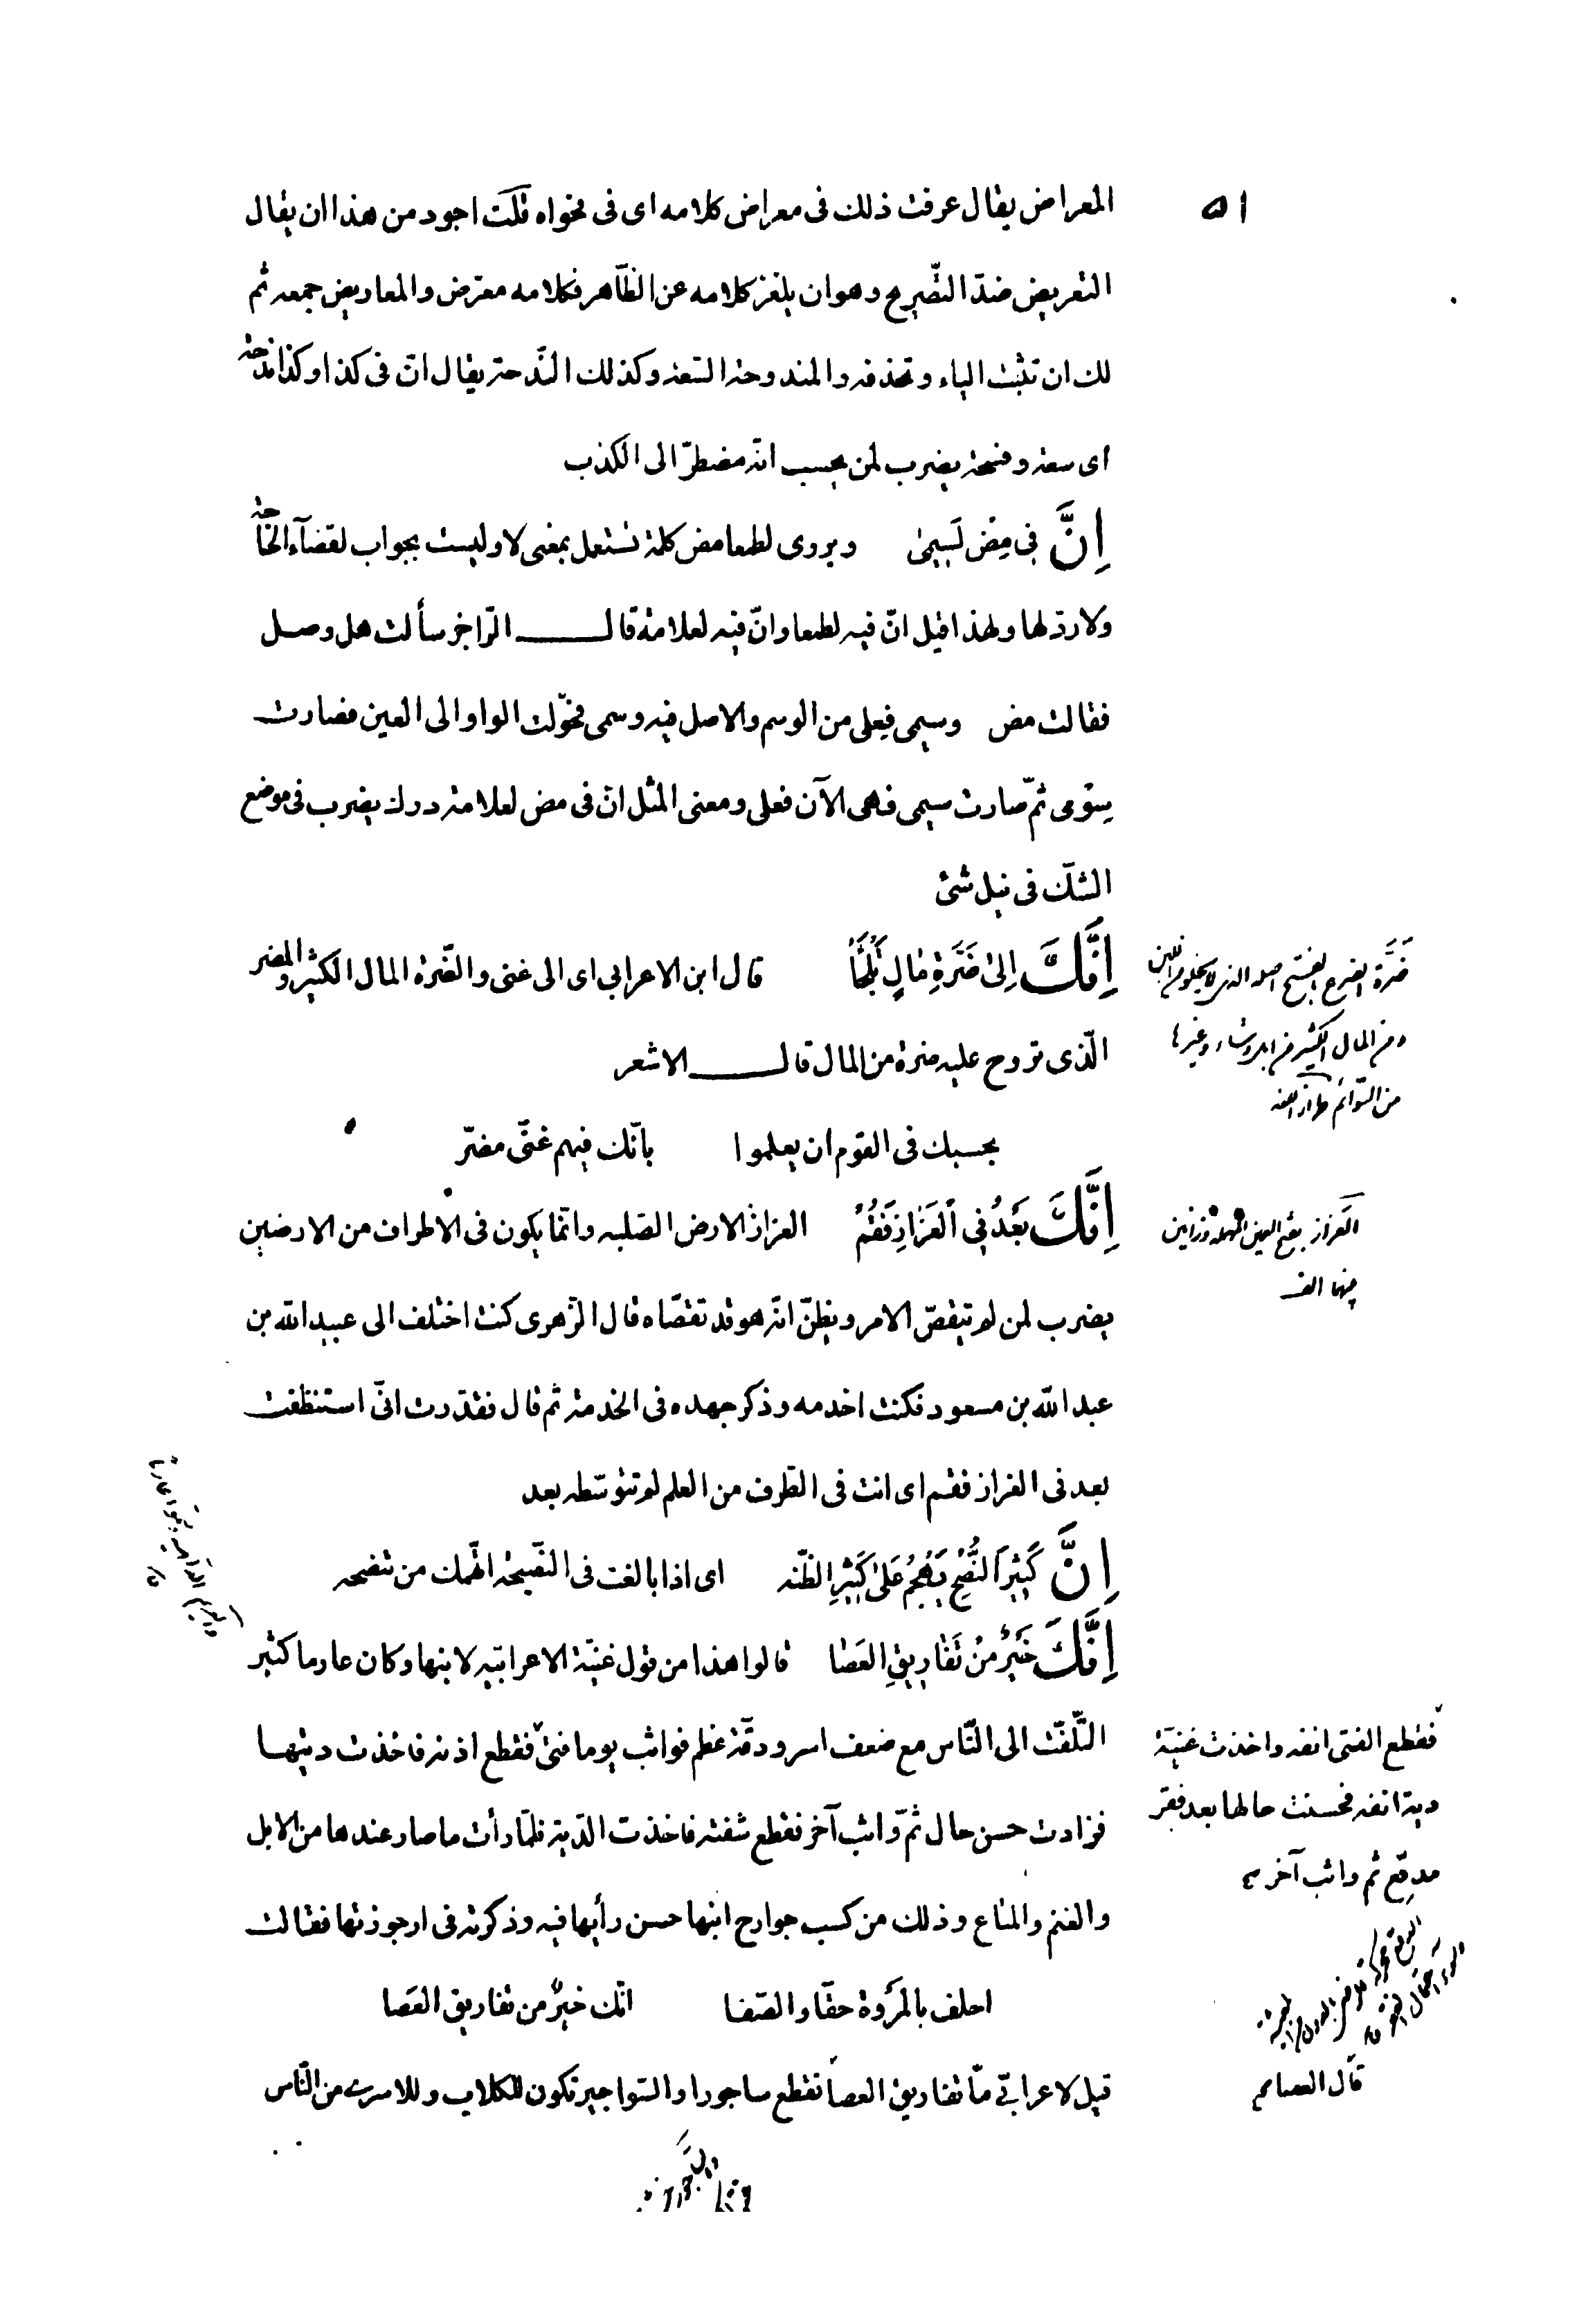 ٥١
المعراض يقال عرفت ذلك فى معراض كلامه اى فى فحواه قلت اجود من هذا ان يقال
التعريض ضدّ التصّريح وهو ان يلغز كلامه عن الظاّهر فكلامه معرّض والمعاريض جمعه ثم
لك ان تثبت الياء وتحذفه والمندوحة السّعة وكذلك النّدحة يقال انّ فى كذا وكذا ندحة
اى سعة وفسحة يضرب لمن يحسب انّه مضطرّ الى الكذب
اِنَّ فِى مِضِّ لَسِيمىٰ ويروى لطمعا مض كلمة تستعمل بمعنى لا وليست بجواب لقضآء الحاجة
ولا ردّ لها ولهذا قيل انّ فيه لطمعا وانّ فيه لعلامة قال الرّاجز سألت هل وصل
فقالت مض وسيمى فِعلى من الوسم والاصل فيه وسمى فحوّلت الواو الى العين فصارت
سِوْمى ثمّ صارت سيمى فهى الآن فعلى ومعنى المثل انّ فى مض لعلامة درك يضرب فى موضع
الشكّ فى نيل شئ
اِنَّكَ اِلىٰ ضَرَّةِ مَالٍ تَلْجَأُ قال ابن الاعرابى اى الى غنى والضّرة المال الكثير والمضر
الّذى تروح عليه ضرة من المال قال الاشعر
بحسبك فى القوم ان يعلموا بانّك فيهم غنىّ مضرّ
اِنَّكَ بَعْدُ فِى العَزَازِ فَقُمْ العزاز الارض الصّلبه وانّما يكون فى الاطراف من الارضين
يضرب لمن لم يتقصّ الامر ويظنّ انّه هو قد تقصّاه قال الزّهرى كنت اختلف الى عبيد الله بن
عبد الله بن مسعود فكنت اخدمه وذكر جهده فى الخدمة ثم قال فقدّرت انّى استنظفت
بعد فى العزاز فقم اى انت فى الطّرف من العلم لم تتوسّطه بعد
اِنَّ كَثِيرَ النُّصْحِ يَهْجُمُ عَلىٰ كَثِيرِ الظِّنّه اى اذا بالغت فى النّصيحة اتّهمك من تنصحه
اِنَّكَ خَيْرٌ مِنْ تَفَارِيقِ العَصَا قالوا هذا من قول غنيّة الاعرابيّه لابنها وكان عارما كثير
التّلفّت الى النّاس مع ضعف اسر ودقّة عظم فواثب يوما فتىً فقطع اذنه فاخذت ديتها
فزادت حسن حال ثمّ واثب آخر فقطع شفته فاخذت الدّية فلمّا رأت ما صار عندها من الابل
والغنم والمتاع وذلك من كسب جوارح ابنها حسن رأيها فيه وذكرته فى ارجوزتها فقالت
احلف بالمَرْوة حقّا والصّفا انّك خيرٌ من تفاريق العَصا
قيل لاعرابىّ ما تفاريق العصا قال العصا تقطع ساجورا والسّواجير تكون للكلاب وللاسرى من النّاس
ضَرَّة الضرع بالفتح اصله الذى لا يخلو من اللبن
من السّوائم طراز اللغه
العَزاز بفتح العين المهملة وزائين
بينهما الف
فقطع الفتى انفه واخذت غنيّة
دية انفه فحسنت حالها بعد فقر
مدقع ثم واثب آخر